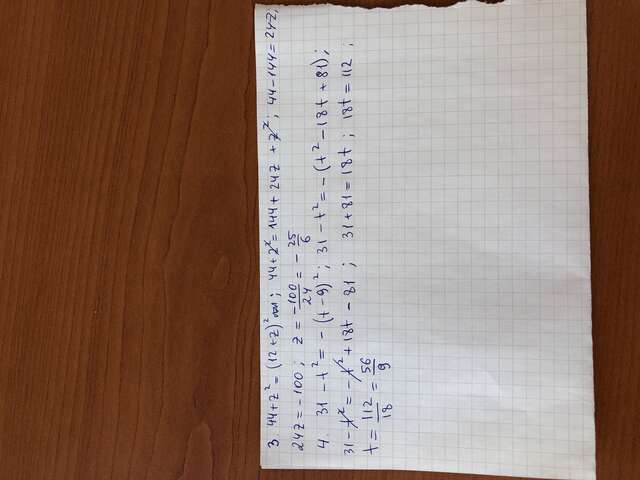 3. 44+z²=(12+z)² ; 44+z²=144+24z+z²; 44-144=24z;
24z=-100; z=-100/24=-25/6
4. 31-t²=-(t-9)²; 31-t²=-(t²-18t+81);
31-t²=-t²+18t-81; 31+81=18t; 18t=112;
t=112/18=56/9